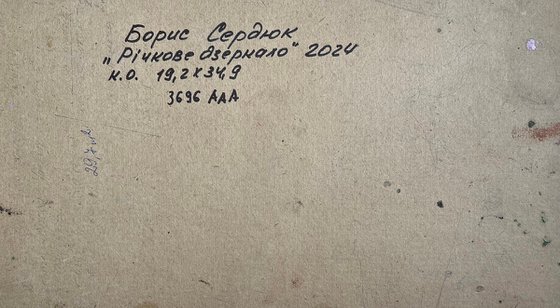 Борис Сердюк
„Річкове дзеркало" 2024
к.о. 19,2х34,9
3696 ААА